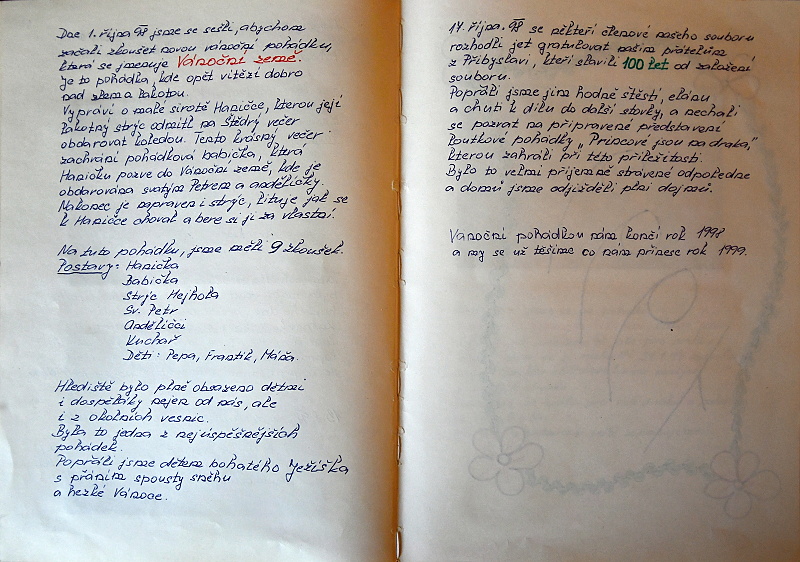 Dne 1. října 98 jsme se sešli, abychom
začali zkoušet novou vánoční pohádku,
která se jmenuje Vánoční země.
Je to pohádka, kde opět vítězí dobro
nad zlem a lakotou.
Vypráví o malé sirotě Haničce, kterou její
lakotný strýc odmítl na Štědrý večer
obdarovat koledou. Tento krásný večer
zachrání pohádková babička, která
Haničku pozve do Vánoční země, kde je
obdarována svatým Petrem a andělíčky.
Nakonec je napraven i strýc, lituje jak se
k Haničce choval a bere si ji za vlastní.
Na tuto pohádku, jsme měli 9 zkoušek.
Postavy: Hanička
Babička
Strýc Hejhola
Sv. Petr
Andělíčci
Kuchař
Děti: Pepa, Frantík, Máňa.
Hlediště bylo plně obsazeno dětmi
i dospěláky nejen od nás, ale
i z okolních vesnic.
Byla to jedna z nejúspěšnějších
pohádek.
Popřáli jsme dětem bohatého Ježíška
s přáním spousty sněhu
a hezké Vánoce.
17. října 98 se někteří členové našeho souboru
rozhodli jet gratulovat našim přátelům
z Přibyslavi, kteří slavili 100 let od založení
souboru.
Popřáli jsme jim hodně štěstí, elánu
a chuti k dílu do další stovky, a nechali
se pozvat na připravené představení
loutkové pohádky „Princové jsou na draka,"
kterou zahráli při této příležitosti.
Bylo to velmi příjemně strávené odpoledne
a domů jsme odjížděli plni dojmů.
Vánoční pohádkou nám končí rok 1998
a my se už těšíme co nám přinese rok 1999.